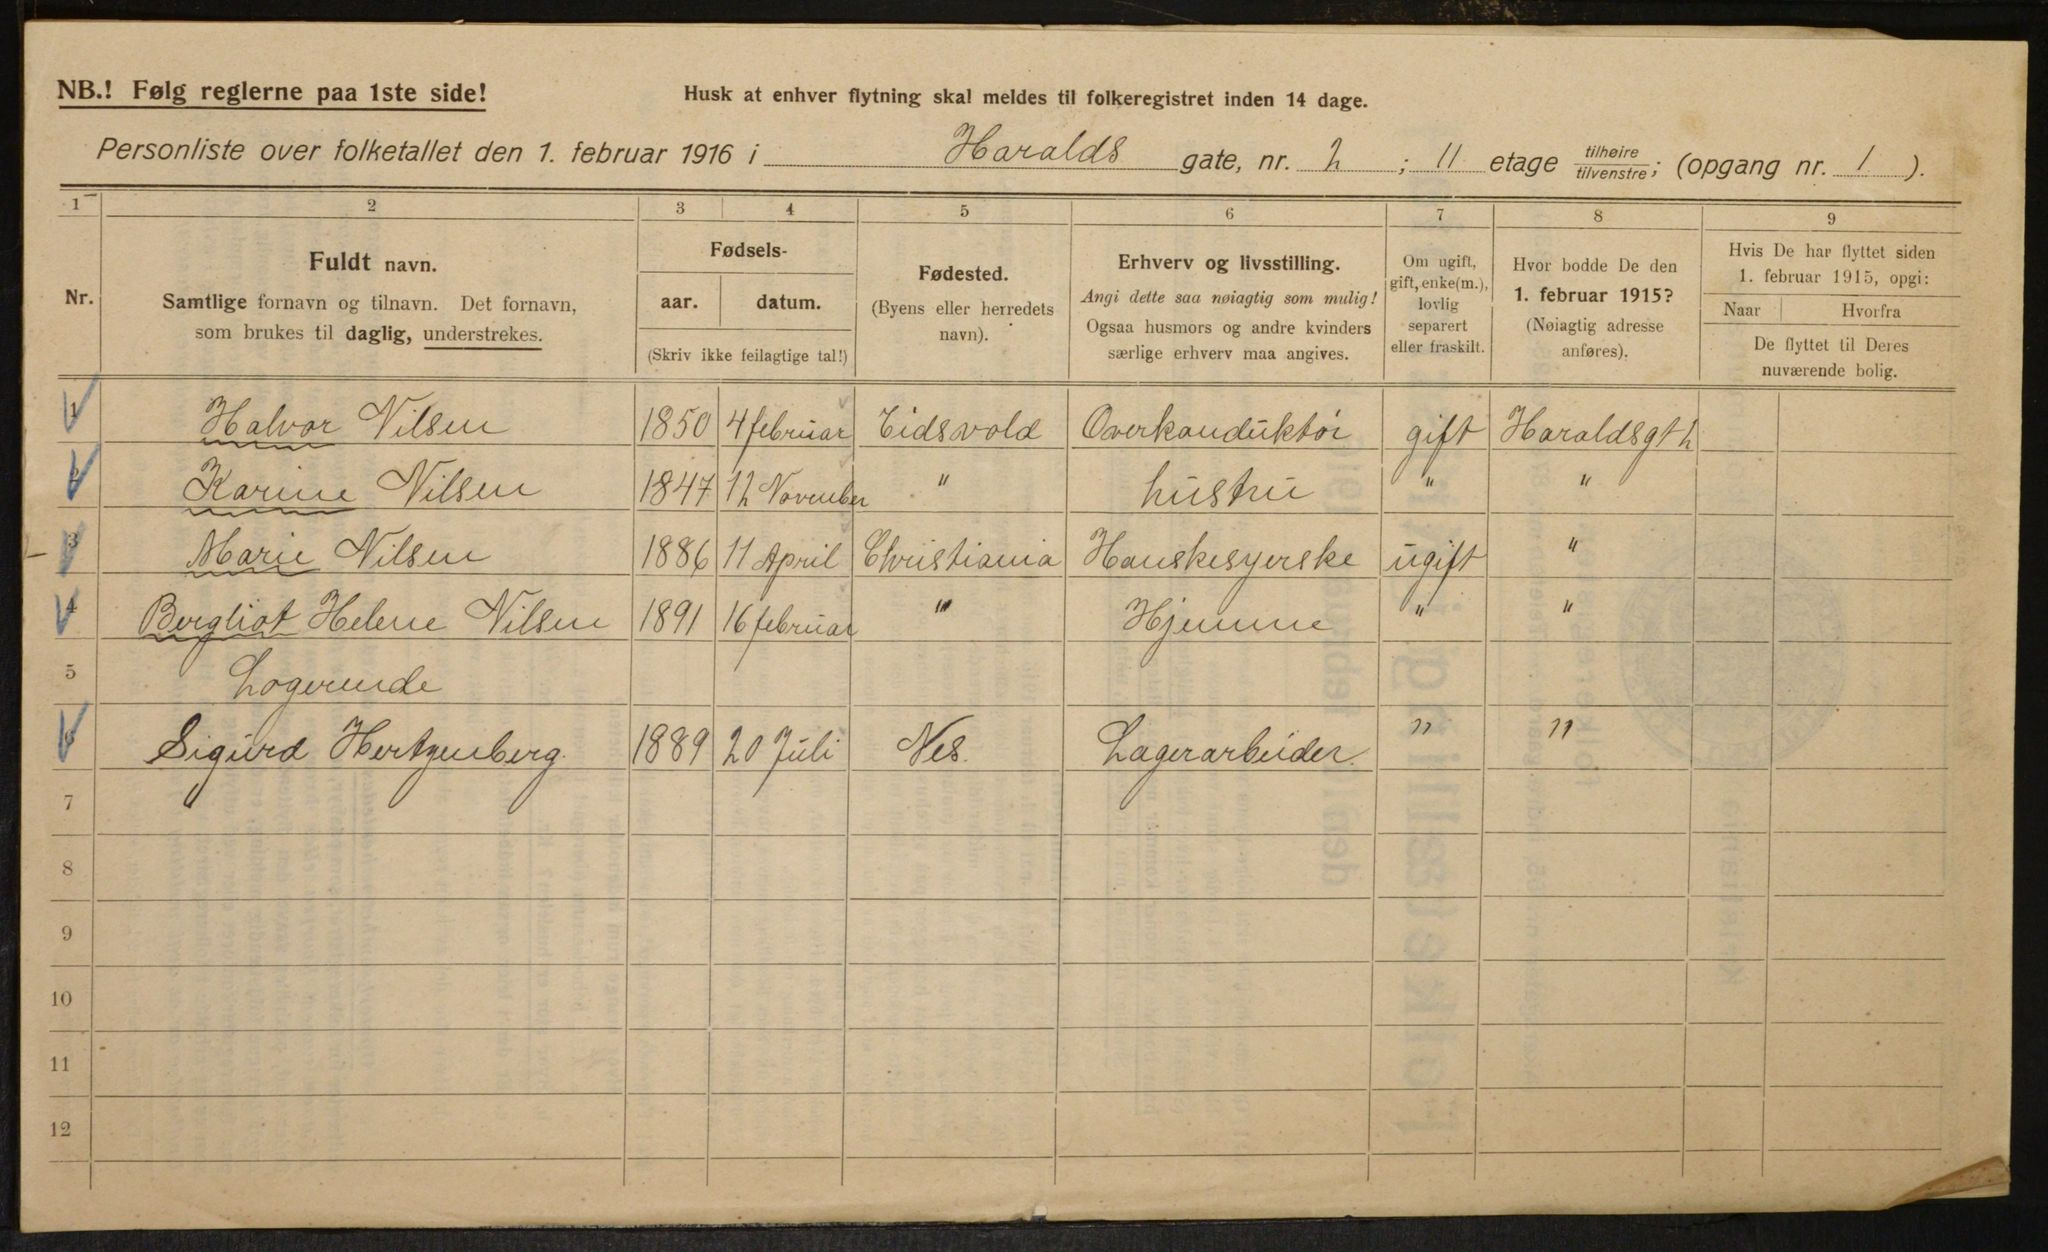 NB.! Følg reglerne paa 1ste side!
Husk at enhver flytning skal meldes til folkeregistret inden 14 dage.
Personliste over folketallet den 1. februar 1916 i Haralds gate, nr. 2 ; 11 etage tilhøire / tilvenstre ; (opgang nr. 1 ).
1 2 3 4 5 6 7 8 9
Nr.
Fuldt navn.
Samtlige fornavn og tilnavn. Det fornavn,
som brukes til daglig, understrekes.
Fødsels-
aar. datum.
(Skriv ikke feilagtige tal!)
Fødested.
(Byens eller herredets
navn).
Erhverv og livsstilling.
Angi dette saa nøiagtig som mulig!
Ogsaa husmors og andre kvinders
særlige erhverv maa angives.
Om ugift,
gift, enke(m.),
lovlig
separert
eller fraskilt.
Hvor bodde De den
1. februar 1915?
(Nøiagtig adresse
anføres).
Hvis De har flyttet siden
1. februar 1915, opgi:
Naar Hvorfra
De flyttet til Deres
nuværende bolig.
1 Halvor Nilsen 1850 4 februar Eidsvold Overkonduktør gift Haraldsgt 2
2 Karine Nilsen 1847 12 November " hustru " "
3 Marie Nilsen 1886 11 April Christiania Hanskesyerske ugift "
4 Bergliot Helene Nilsen 1891 16 februar " Hjemme " "
5 Logerende
6 Sigurd Hertzenberg. 1889 20 Juli Nes. Lagerarbeider. " "
7
8
9
10
11
12